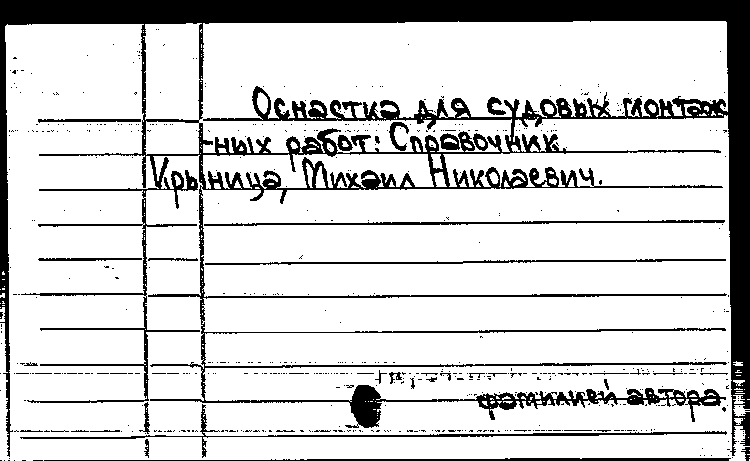 Оснастка для судовых монтаж
-ных работ: Справочник.
Крыница, Михаил Николаевич.
фамилией автора.